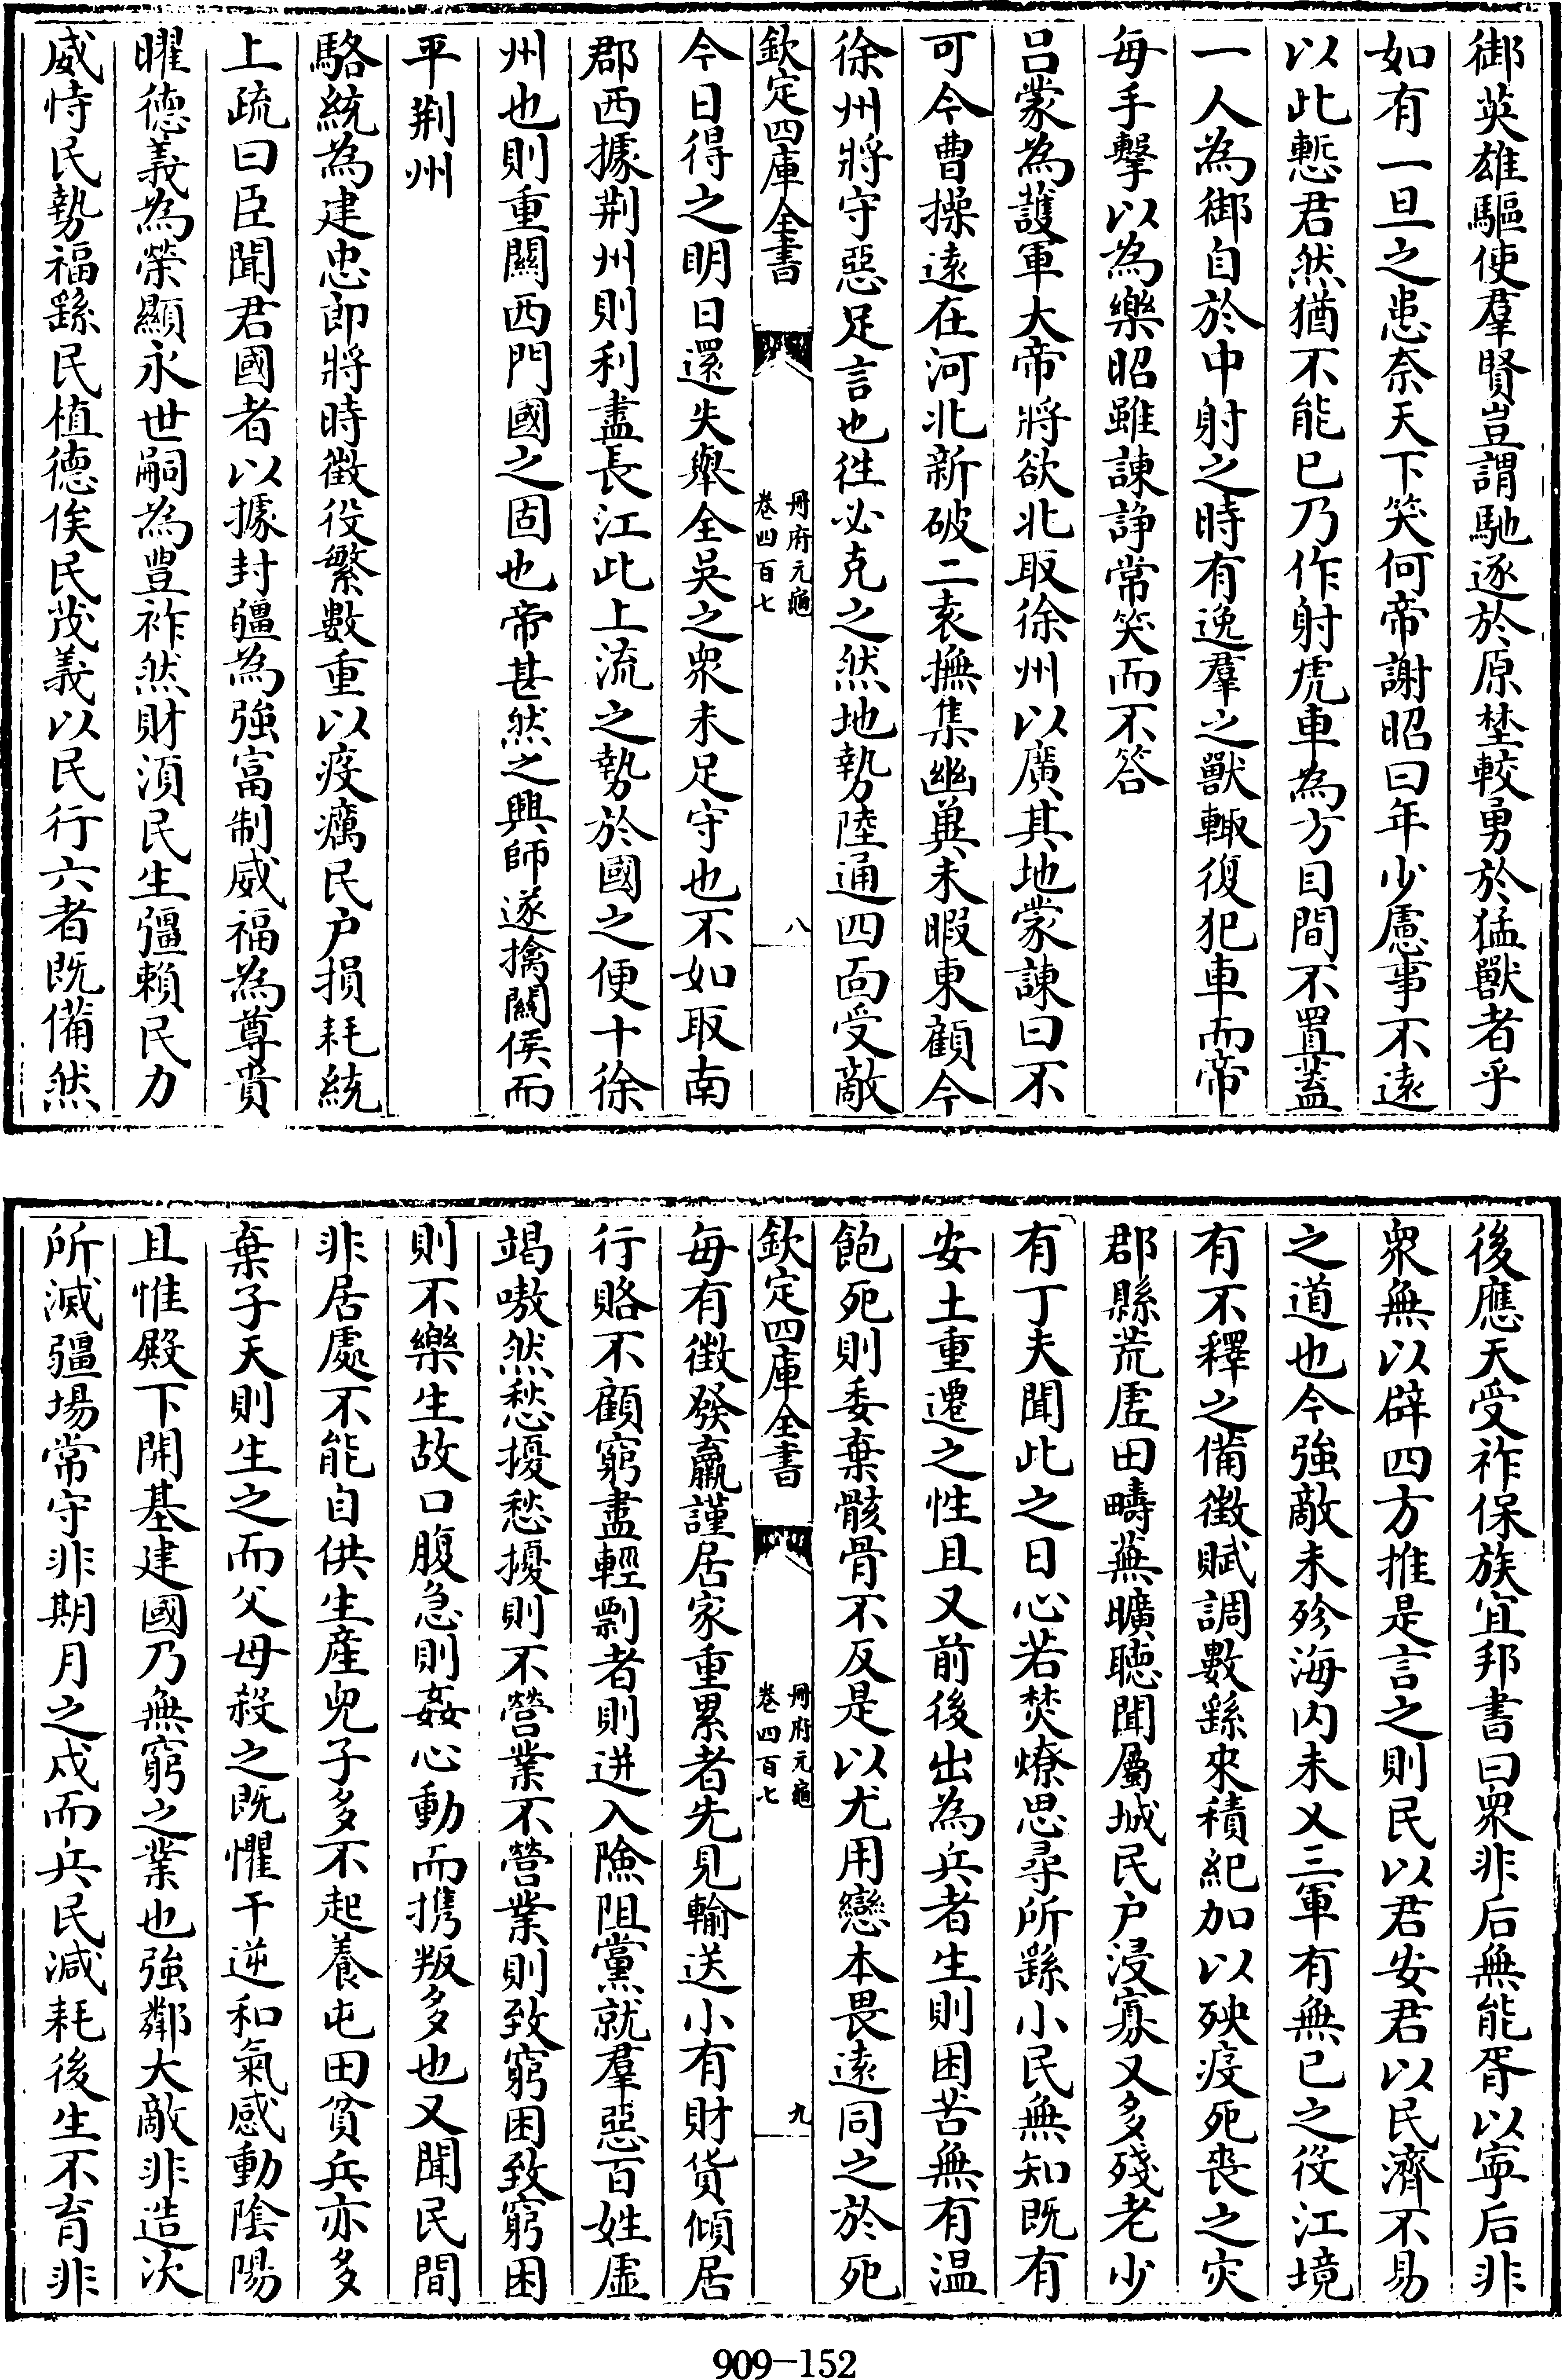 御英雄驅使羣賢豈謂馳逐於原埜較勇於猛獸者乎
如有一旦之患奈天下笑何帝謝昭曰年少慮事不遠
以此慙君然猶不能已乃作射虎車為方目間不置蓋
一人為御自於中射之時有逸羣之獸輙復犯車而帝
每手擊以為樂昭雖諫諍常笑而不答
吕蒙為護軍大帝將欲北取徐州以廣其地蒙諫曰不
可今曹操遠在河北新破二袁撫集幽冀未暇東顧今
徐州將守惡足言也徃必克之然地勢陸通四面受敵
欽定四庫全書
冊府元龜
卷四百七
八
今日得之明日還失舉全吳之衆未足守也不如取南
郡西據荆州則利盡長江此上流之勢於國之便十徐
州也則重關西門國之固也帝甚然之興師遂擒關侯而
平荆州
駱統為建忠郎將時徵役繁數重以疫癘民户損耗統
上疏曰臣聞君國者以據封疆為強富制威福為尊貴
曜德義為榮顯永世嗣為豐祚然財須民生彊賴民力
威恃民勢福繇民植德俟民茂義以民行六者既備然
後應天受祚保族宜邦書曰衆非后無能胥以寧后非
衆無以辟四方推是言之則民以君安君以民濟不易
之道也今強敵未殄海内未乂三軍有無已之役江境
有不釋之備徵賦調數繇來積紀加以殃疫死喪之灾
郡縣荒虛田疇蕪曠聽聞屬城民户浸寡又多殘老少
有丁夫聞此之日心若焚燎思尋所繇小民無知既有
安土重遷之性且又前後出為兵者生則困苦無有温
飽死則委棄骸骨不反是以尤用戀本畏遠同之於死
欽定四庫全書
冊府元龜
卷四百七
九
每有徵發羸謹居家重累者先見輸送小有財貨傾居
行賂不顧窮盡輕剽者則迸入險阻黨就羣惡百姓虛
竭嗷然愁擾愁擾則不營業不營業則致窮困致窮困
則不樂生故口腹急則姦心動而攜叛多也又聞民間
非居處不能自供生產兒子多不起養屯田貧兵亦多
棄子天則生之而父母殺之既懼干逆和氣感動陰陽
且惟殿下開基建國乃無窮之業也強鄰大敵非造次
所滅疆場常守非期月之戍而兵民減耗後生不育非
909-152